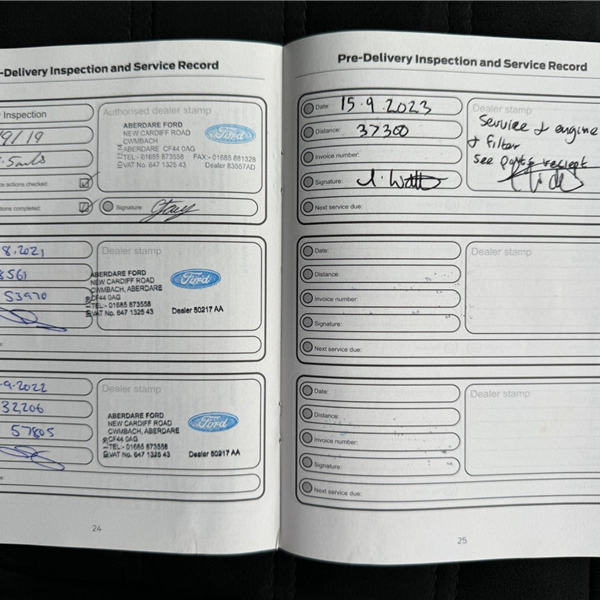 -Delivery Inspection and Service Record
Inspection
9/19
actions checked:
tions completed:
Authorised dealer stamp
ABERDARE FORD
NEW CARDIFF ROAD
CWMBACH
ABERDARE CF44 0AG
TEL - 01685 873558 FAX - 01685 881328
Dealer 83557AD
Ford
Signature:
8.2021
8561
53970
Dealer stamp
ABERDARE FORD
NEW CARDIFF ROAD
CWMBACH, ABERDARE
CF44 0AG
TEL - 01685 873558
VAT No. 647 1325 43
Ford
Dealer 80217 AA
9.2022
32206
57805
Dealer stamp
ABERDARE FORD
NEW CARDIFF ROAD
CWMBACH, ABERDARE
CF44 0AG
TEL - 01685 873558
VAT No. 647 1325 43
Ford
Dealer 80217 AA
24
Pre-Delivery Inspection and Service Record
Date: 15.9.2023
Distance: 37300
Invoice number:
Signature:
Next service due:
Dealer stamp
Service + engine
+ filter
see parts reciept
Date:
Distance:
Invoice number:
Signature:
Next service due:
Dealer stamp
Date:
Distance:
Invoice number:
Signature:
Next service due:
Dealer stamp
25